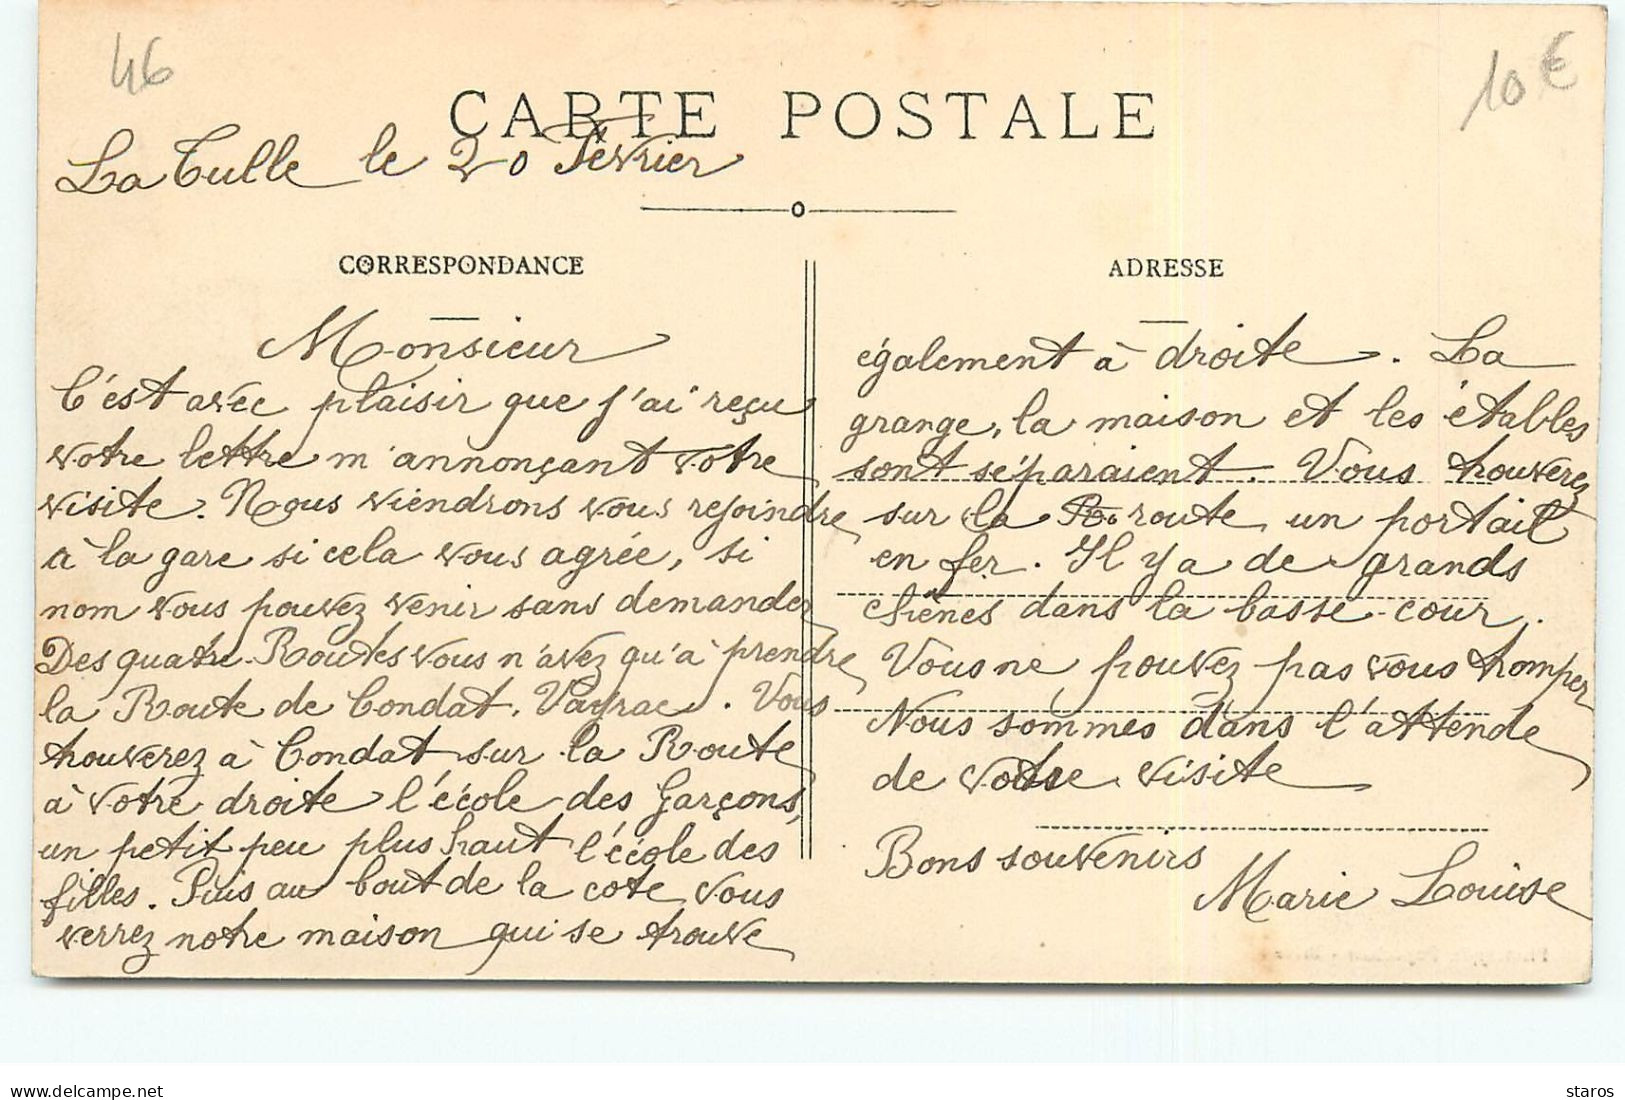 46
10 €
CARTE POSTALE
La Tulle le 20 Février
CORRESPONDANCE
Monsieur
C'est avec plaisir que j'ai reçu
votre lettre m'annonçant votre
visite. Nous viendrons vous rejoindre
à la gare si cela vous agrée, si
nom vous pouvez venir sans demander
Des quatre Routes vous n'avez qu'à prendre
la Route de Condat, Vayrac. Vous
trouverez à Condat sur la Route
à votre droite l'école des Garçons,
un petit peu plus haut l'école des
filles. Puis au bout de la cote vous
verrez notre maison qui se trouve
ADRESSE
également à droite. La
grange, la maison et les étables
sont séparaient. Vous trouverez
sur la Ro route un portail
en fer. Il y a de grands
chênes dans la basse-cour.
Vous ne pouvez pas vous tromper
Nous sommes dans l'attende
de votre visite
Bons souvenirs
Marie Louise
delcampe.net
staros